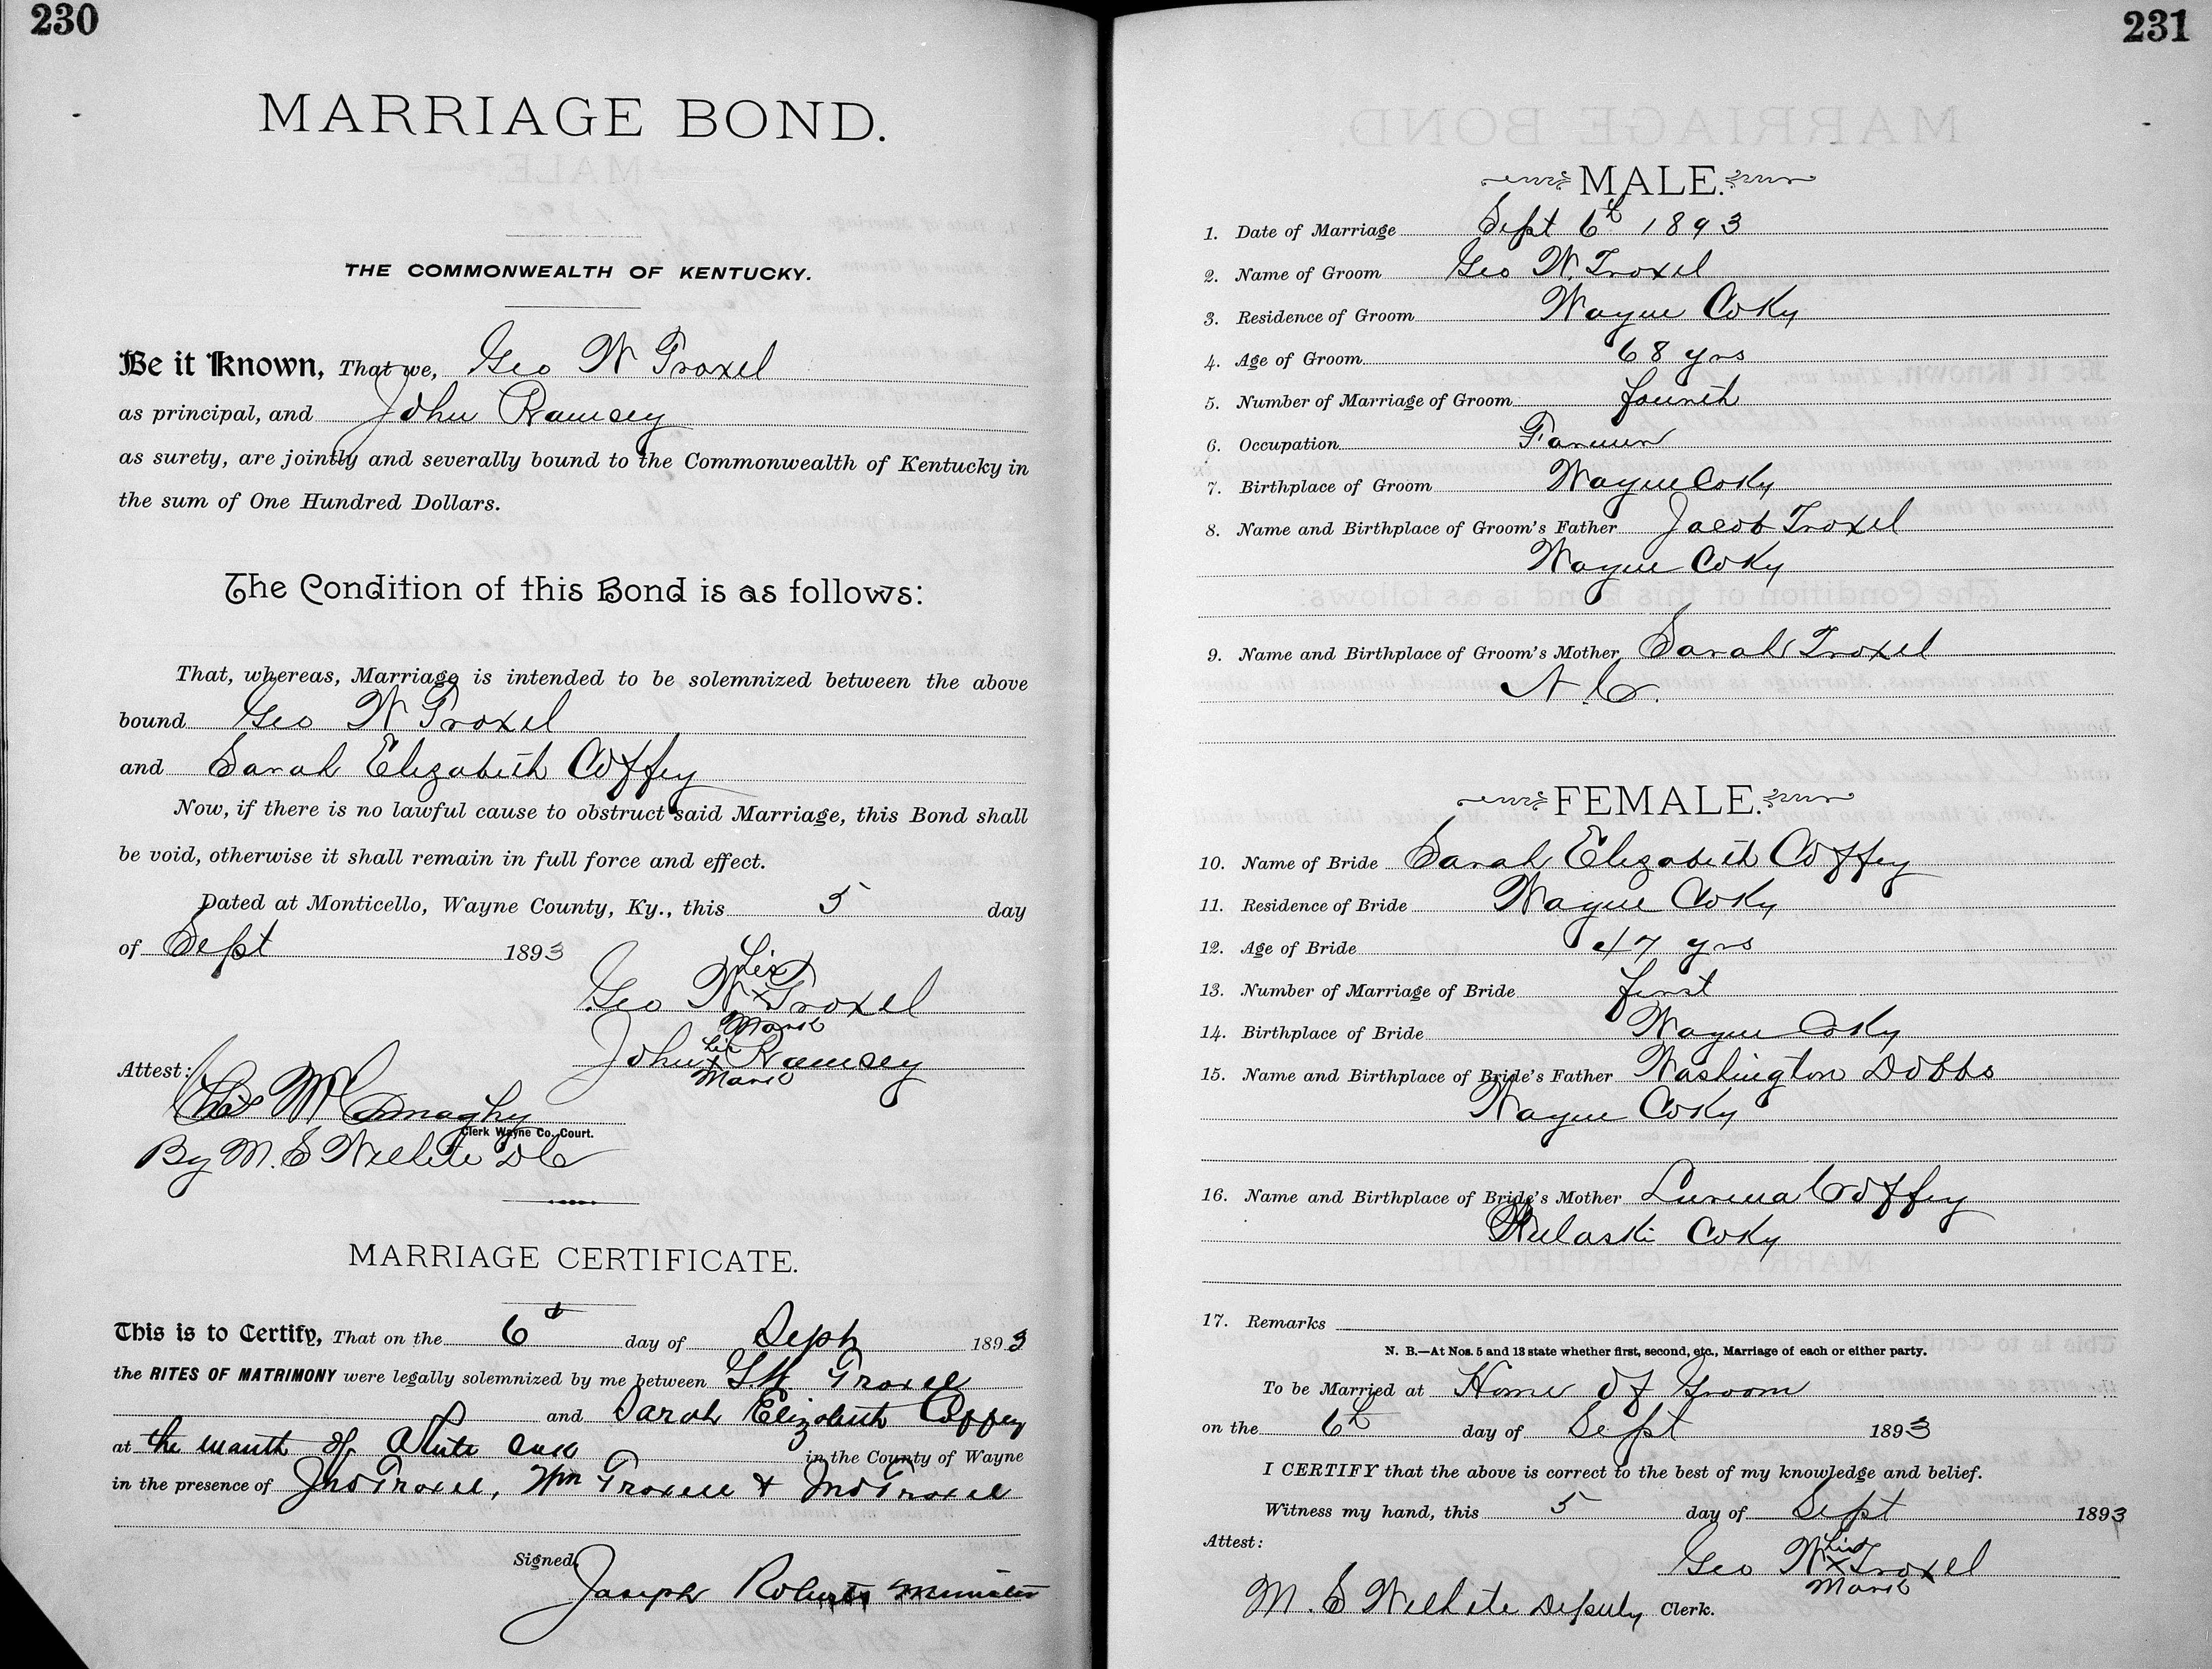 230
MARRIAGE BOND.
THE COMMONWEALTH OF KENTUCKY.
Be it Known, That we, Geo W Troxel
as principal, and John Ramsey
as surety, are jointly and severally bound to the Commonwealth of Kentucky in
the sum of One Hundred Dollars.
The Condition of this Bond is as follows:
That, whereas, Marriage is intended to be solemnized between the above
bound Geo W Troxel
and Sarah Elizabeth Coffey
Now, if there is no lawful cause to obstruct said Marriage, this Bond shall
be void, otherwise it shall remain in full force and effect.
Dated at Monticello, Wayne County, Ky., this 5 day
of Sept 1893
his
Geo W x Troxel
Mark
his
John x Ramsey
Mark
Attest:
Clerk Wayne Co. Court.
By M. S Wilhite DC
MARRIAGE CERTIFICATE.
This is to Certify, That on the 6th day of Sept 1893
the RITES OF MATRIMONY were legally solemnized by me between G.W Troxel
and Sarah Elizabeth Coffey
at the mouth of in the County of Wayne
in the presence of Jno Troxel, Wm Troxell & Troxel
Signed, Joseph Roberts Minister
231
MALE.
1. Date of Marriage Sept 6th 1893
2. Name of Groom Geo W. Troxel
3. Residence of Groom Wayne Co Ky
4. Age of Groom 68 yrs
5. Number of Marriage of Groom fourth
6. Occupation Farmer
7. Birthplace of Groom Wayne Co Ky
8. Name and Birthplace of Groom's Father Jacob Troxel
Wayne Co Ky
9. Name and Birthplace of Groom's Mother Sarah Troxel
N. C.
FEMALE.
10. Name of Bride Sarah Elizabeth Coffey
11. Residence of Bride Wayne Co Ky
12. Age of Bride 47 yrs
13. Number of Marriage of Bride first
14. Birthplace of Bride Wayne Co Ky
15. Name and Birthplace of Bride's Father Washington Dobbs
Wayne Co Ky
16. Name and Birthplace of Bride's Mother Coffey
Pulaski Co Ky
17. Remarks
N. B.—At Nos. 5 and 13 state whether first, second, etc., Marriage of each or either party.
To be Married at Home of Groom
on the 6th day of Sept 1893
I CERTIFY that the above is correct to the best of my knowledge and belief.
Witness my hand, this 5 day of Sept 1893
Attest:
his
Geo W x Troxel
Mark
M. S Wilhite Deputy Clerk.